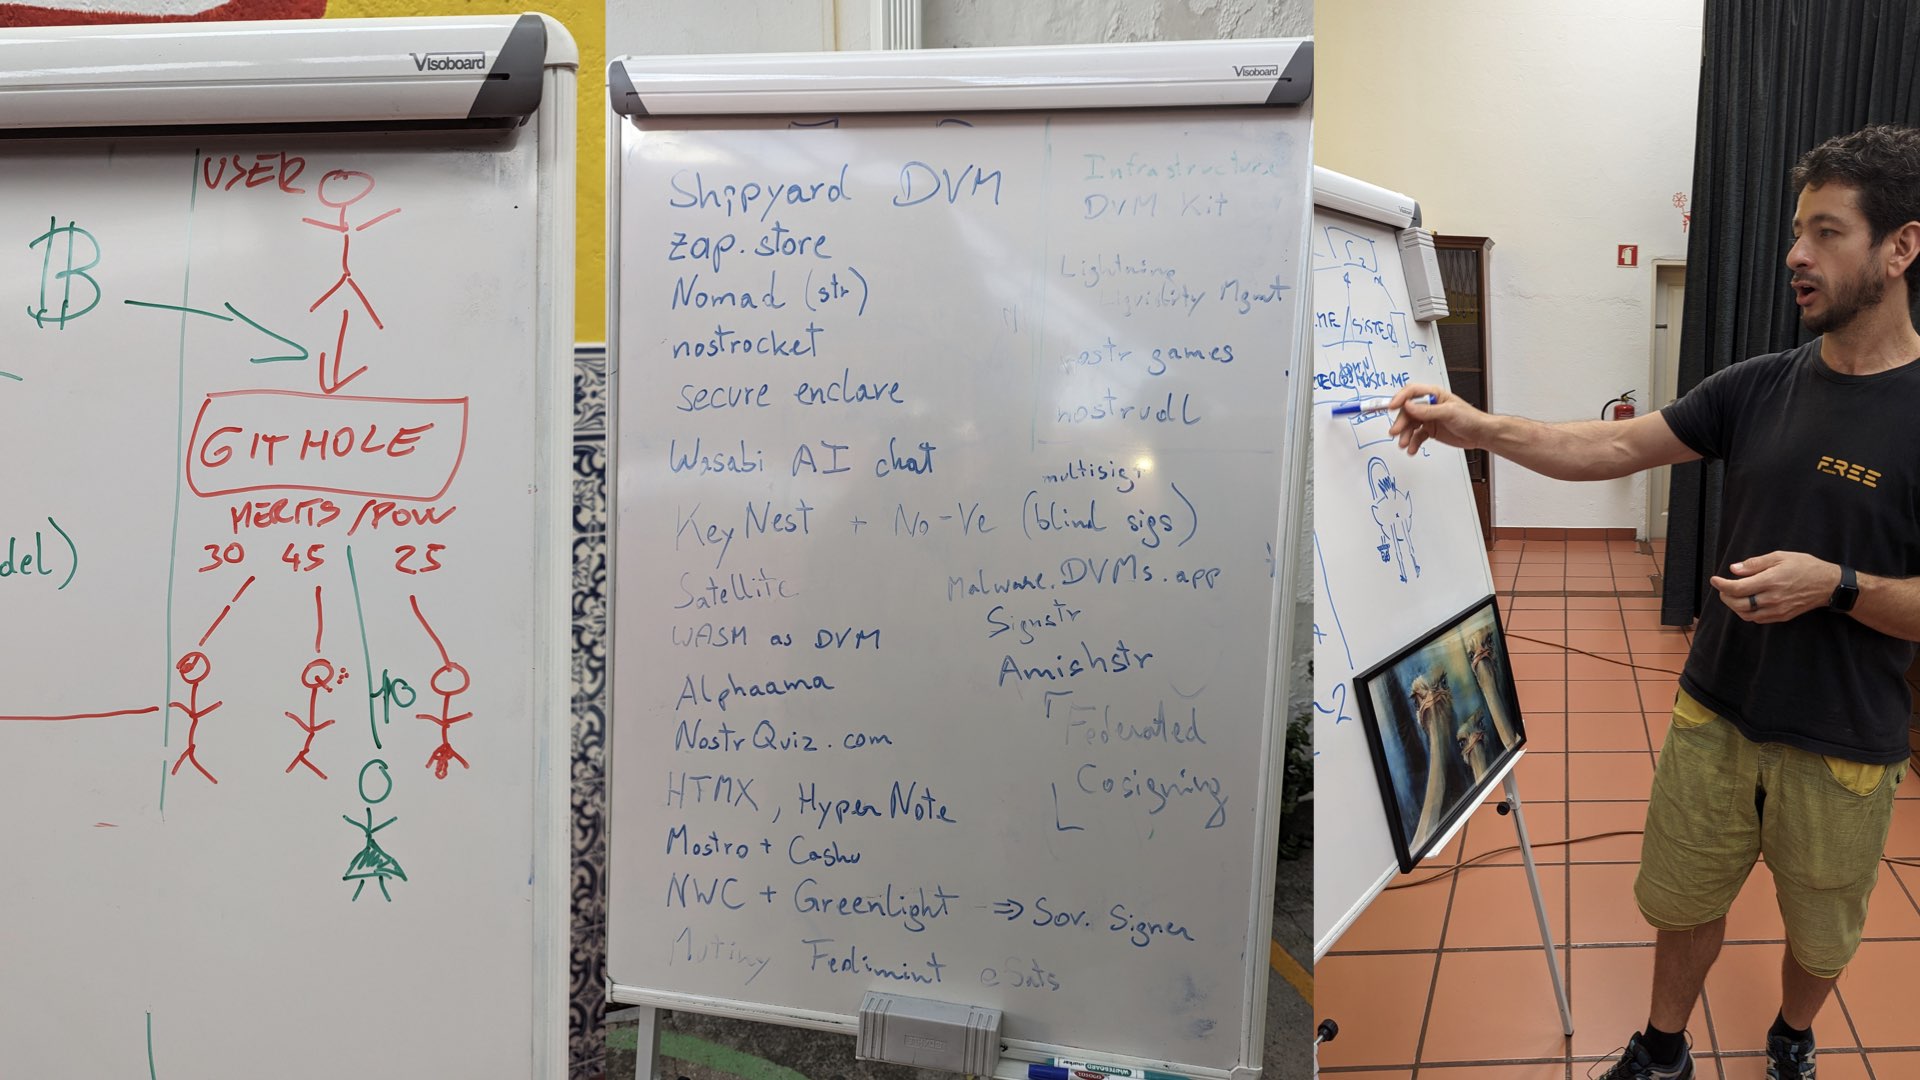 Visoboard
USER
₿
GITHOLE
MERITS/POW
30 45 25
del)
Visoboard
Shipyard DVM
zap.store
Nomad (str)
nostrocket
secure enclave
Wasabi AI chat
KeyNest + No-Ve (blind sigs)
multisig
Satellite
WASM as DVM
Alphaama
NostrQuiz.com
HTMX, HyperNote
Mostro + Cashu
NWC + Greenlight ⇒ Sov. Signer
Mutiny Fedimint eSats
Infrastructure
DVM Kit
Lightning
Liquidity Mgmt
nostr games
nostrudl
Malware.DVMs.app
Signstr
Amishstr
Federated
Cosigning
.ME/SISTER
FREE